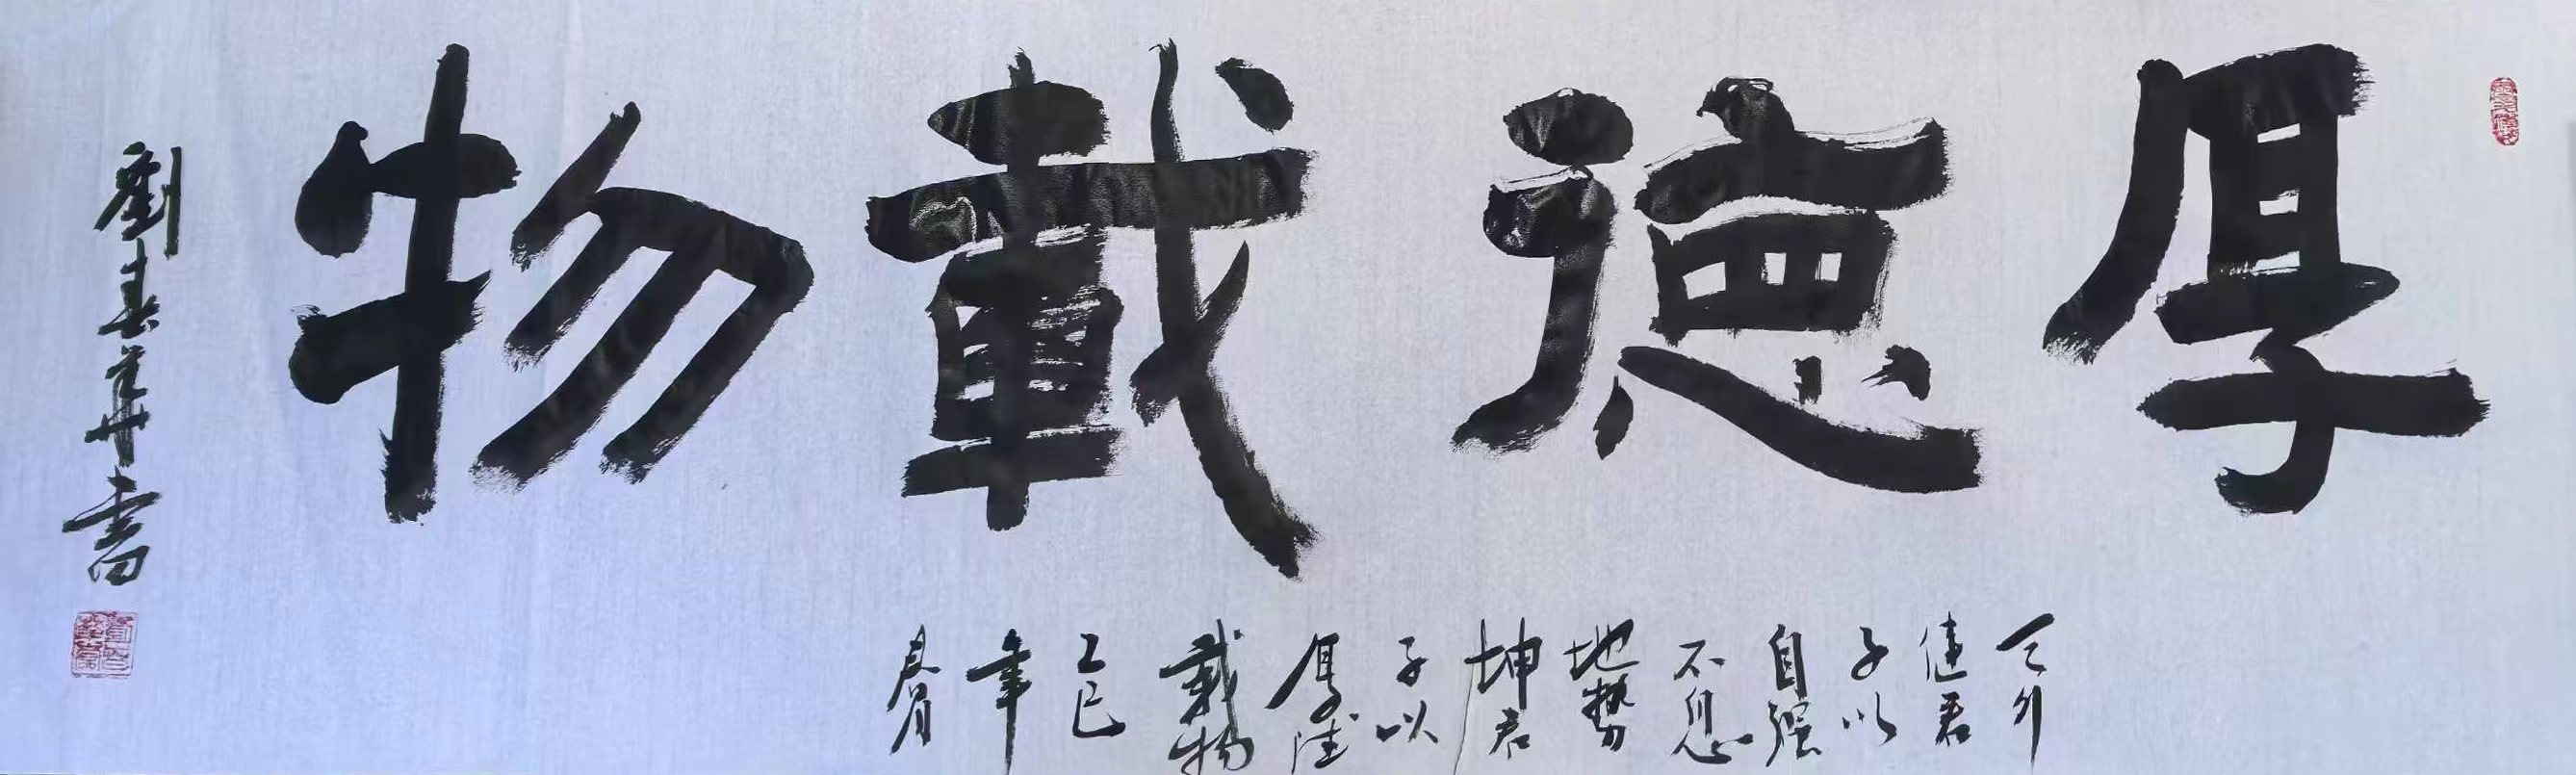 厚德載物
天行
健君
子以
自强
不息
地勢
坤君
子以
厚德
載物
乙巳
年
月
劉春華書